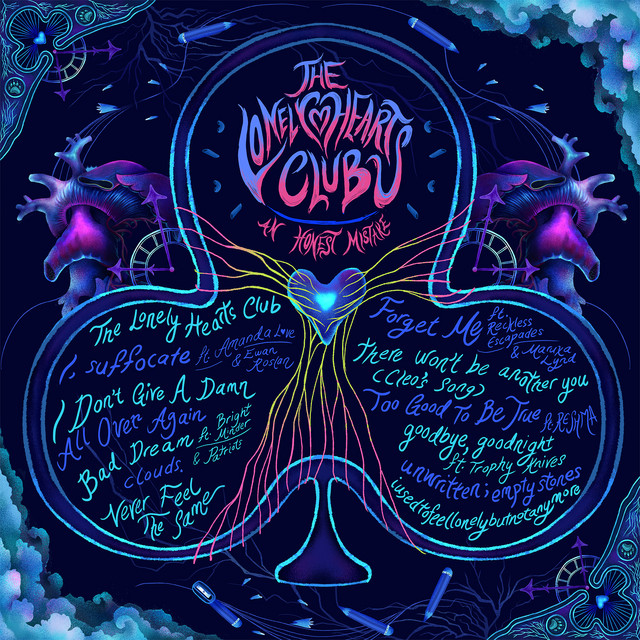 THE
LONELY HEARTS
CLUB
AN HONEST MISTAKE
The Lonely Hearts Club
I, suffocate ft Amanda Love
& Ewan
Rostan
I Don't Give A Damn
All Over Again
Bad Dream ft Bright
& Patriots
clouds.
Never Feel
The Same
Forget Me ft
Reckless
Escapades
&
there won't be another you
(Cleo's Song)
Too Good To Be True ft RESHMA
goodbye, goodnight
ft Trophy Knives
unwritten; empty stones
iusedtofeellonelybutnotanymore